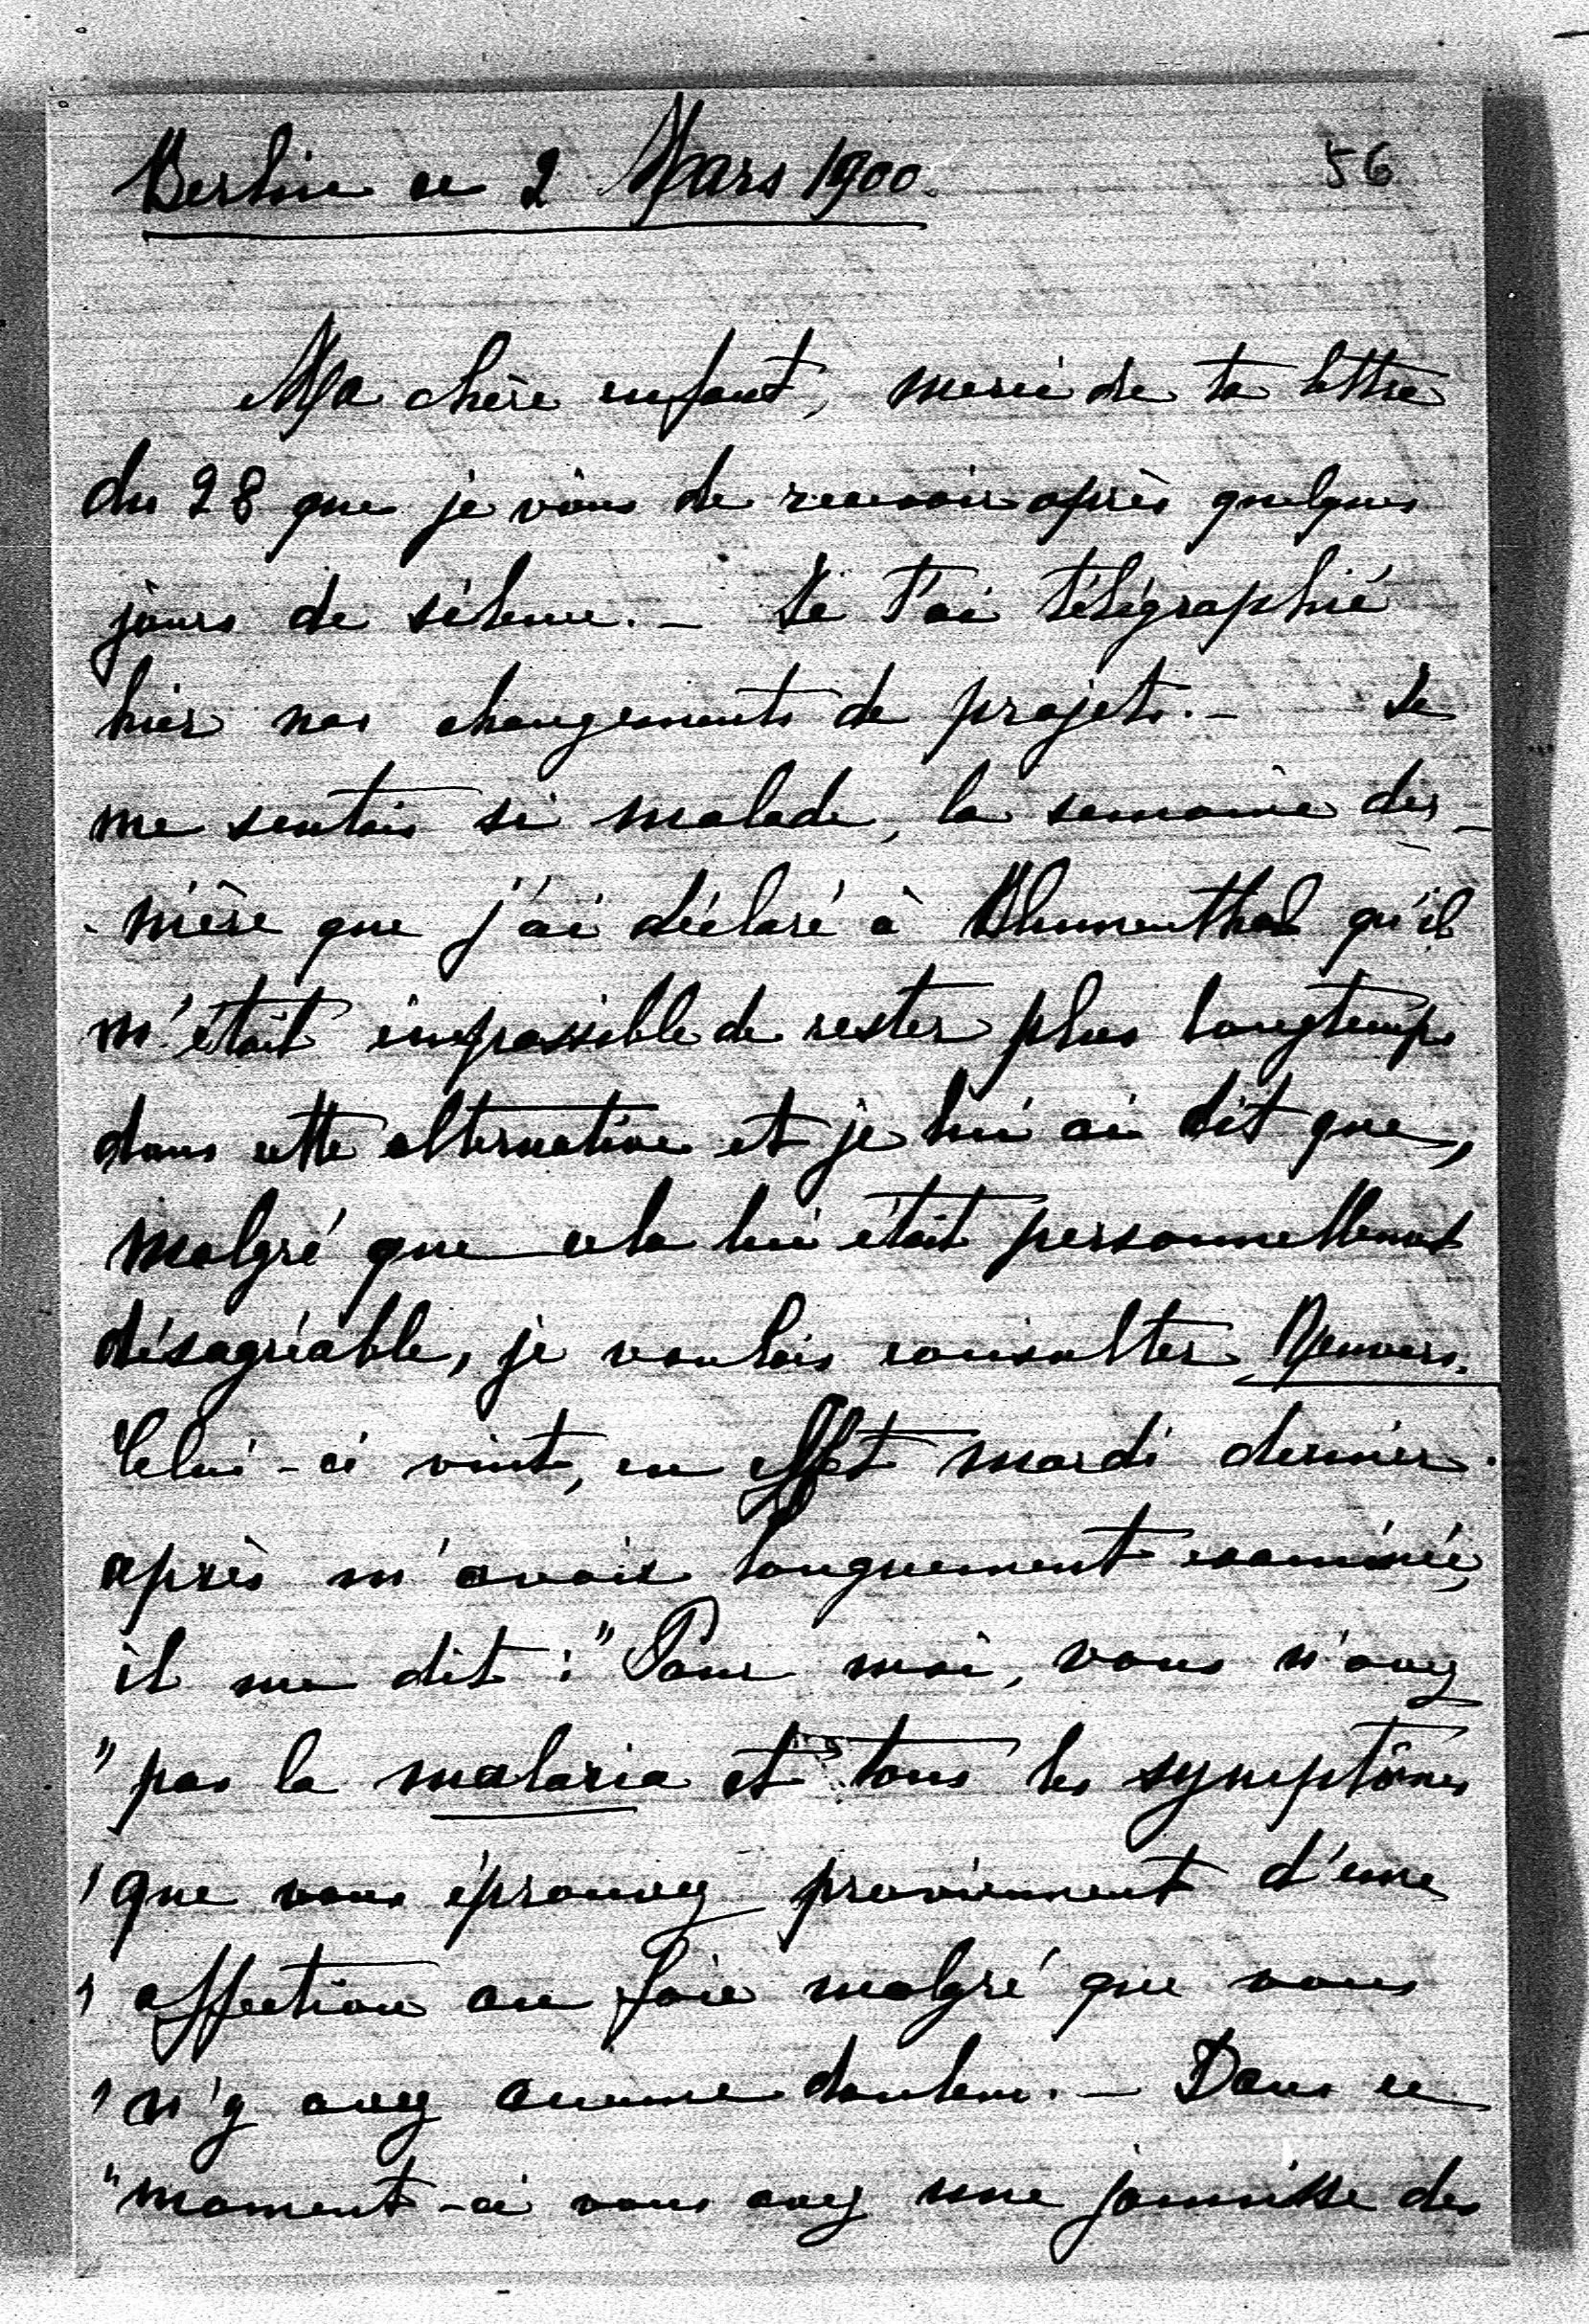 Berlin ce 2 Mars 1900.
56
Ma chère enfant, merci de ta lettre
du 28 que je viens de recevoir après quelques
jours de silence. – Je t'ai télégraphié
hier nos changements de projets. – Je
me sentais si malade, la semaine der-
-nière que j'ai déclaré à Blumenthal qu'il
m'était impossible de rester plus longtemps
dans cette alternative et je lui ai dit que,
malgré que cela lui était personnellement
désagréable, je voulais consulter Renvers.
Celui-ci vint, en effet mardi dernier.
après m'avoir longuement examinée,
il me dit : "Pour moi, vous n'avez
"pas la malaria et tous les symptômes
"que vous éprouvez proviennent d'une
"affection au foie malgré que vous
"n'y avez aucune douleur. – Dans ce
"moment-ci vous avez une jaunisse des